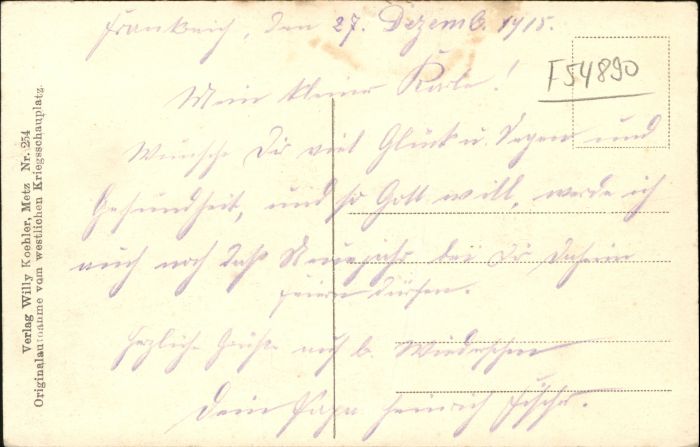 Frankreich, den 27. Dezemb. 1915.
F54890
Mein kleiner Karle!
Wünsche Dir viel Glück u. Segen und
Gesundheit, und so Gott will, werde ich
auch noch das Neuejahr bei Dir daheim
feiern dürfen.
Herzliche Grüße auf b. Wiedersehen
Dein Papa Heinrich
Verlag Willy Koehler, Metz Nr. 254
Originalaufnahme vom westlichen Kriegsschauplatz.